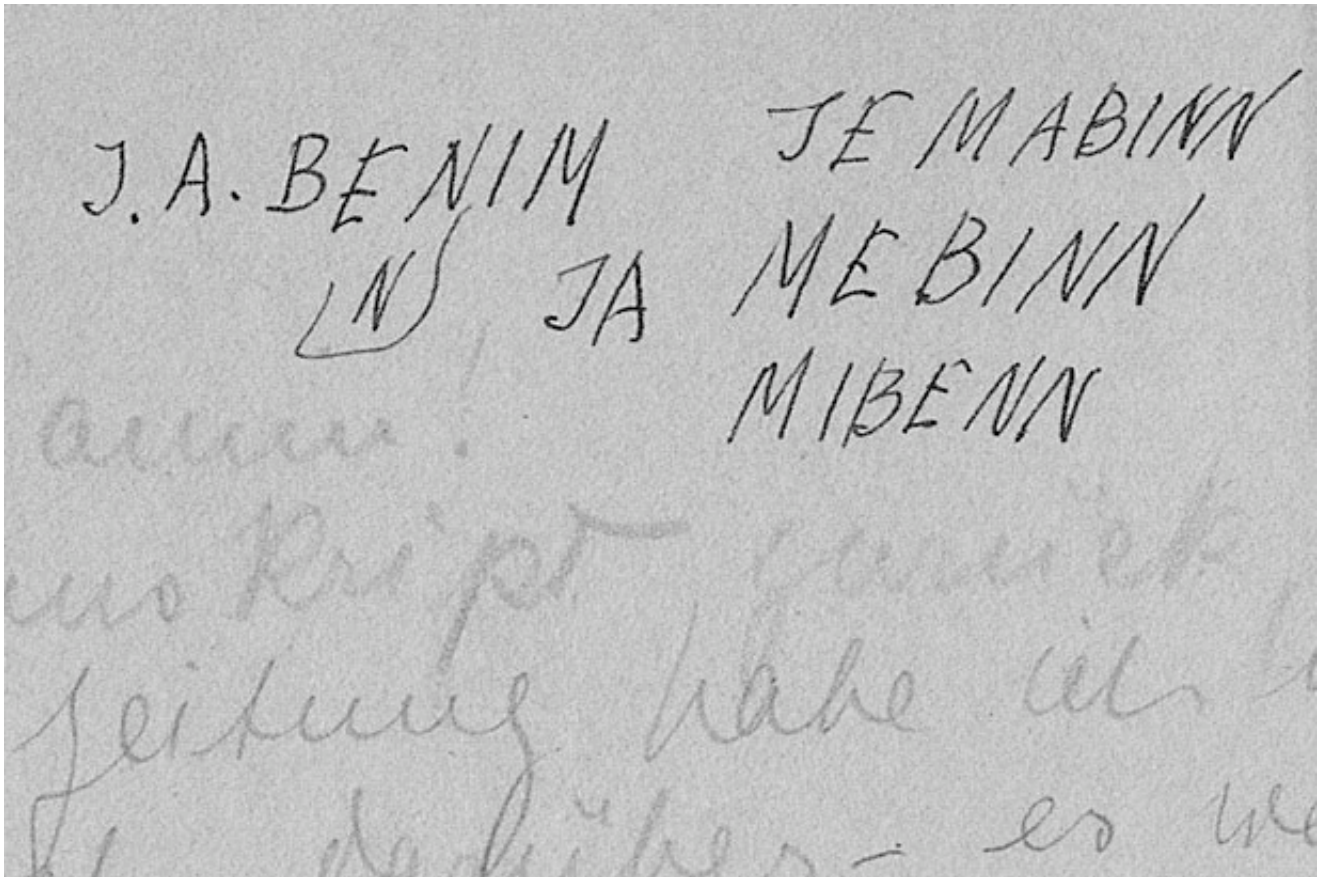 J.A. BENIM
N
JA
JE MABINN
MEBINN
MIBENN
zurück
Zeitung habe ich
darüber - es